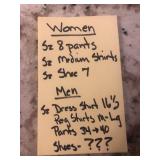 Women
Sz 8 pants
Sz Medium Shirts
Sz Shoe 7
Men
Sz Dress Shirt 16½
Reg Shirts M-Lg
Pants 34→40
Shoes - ???